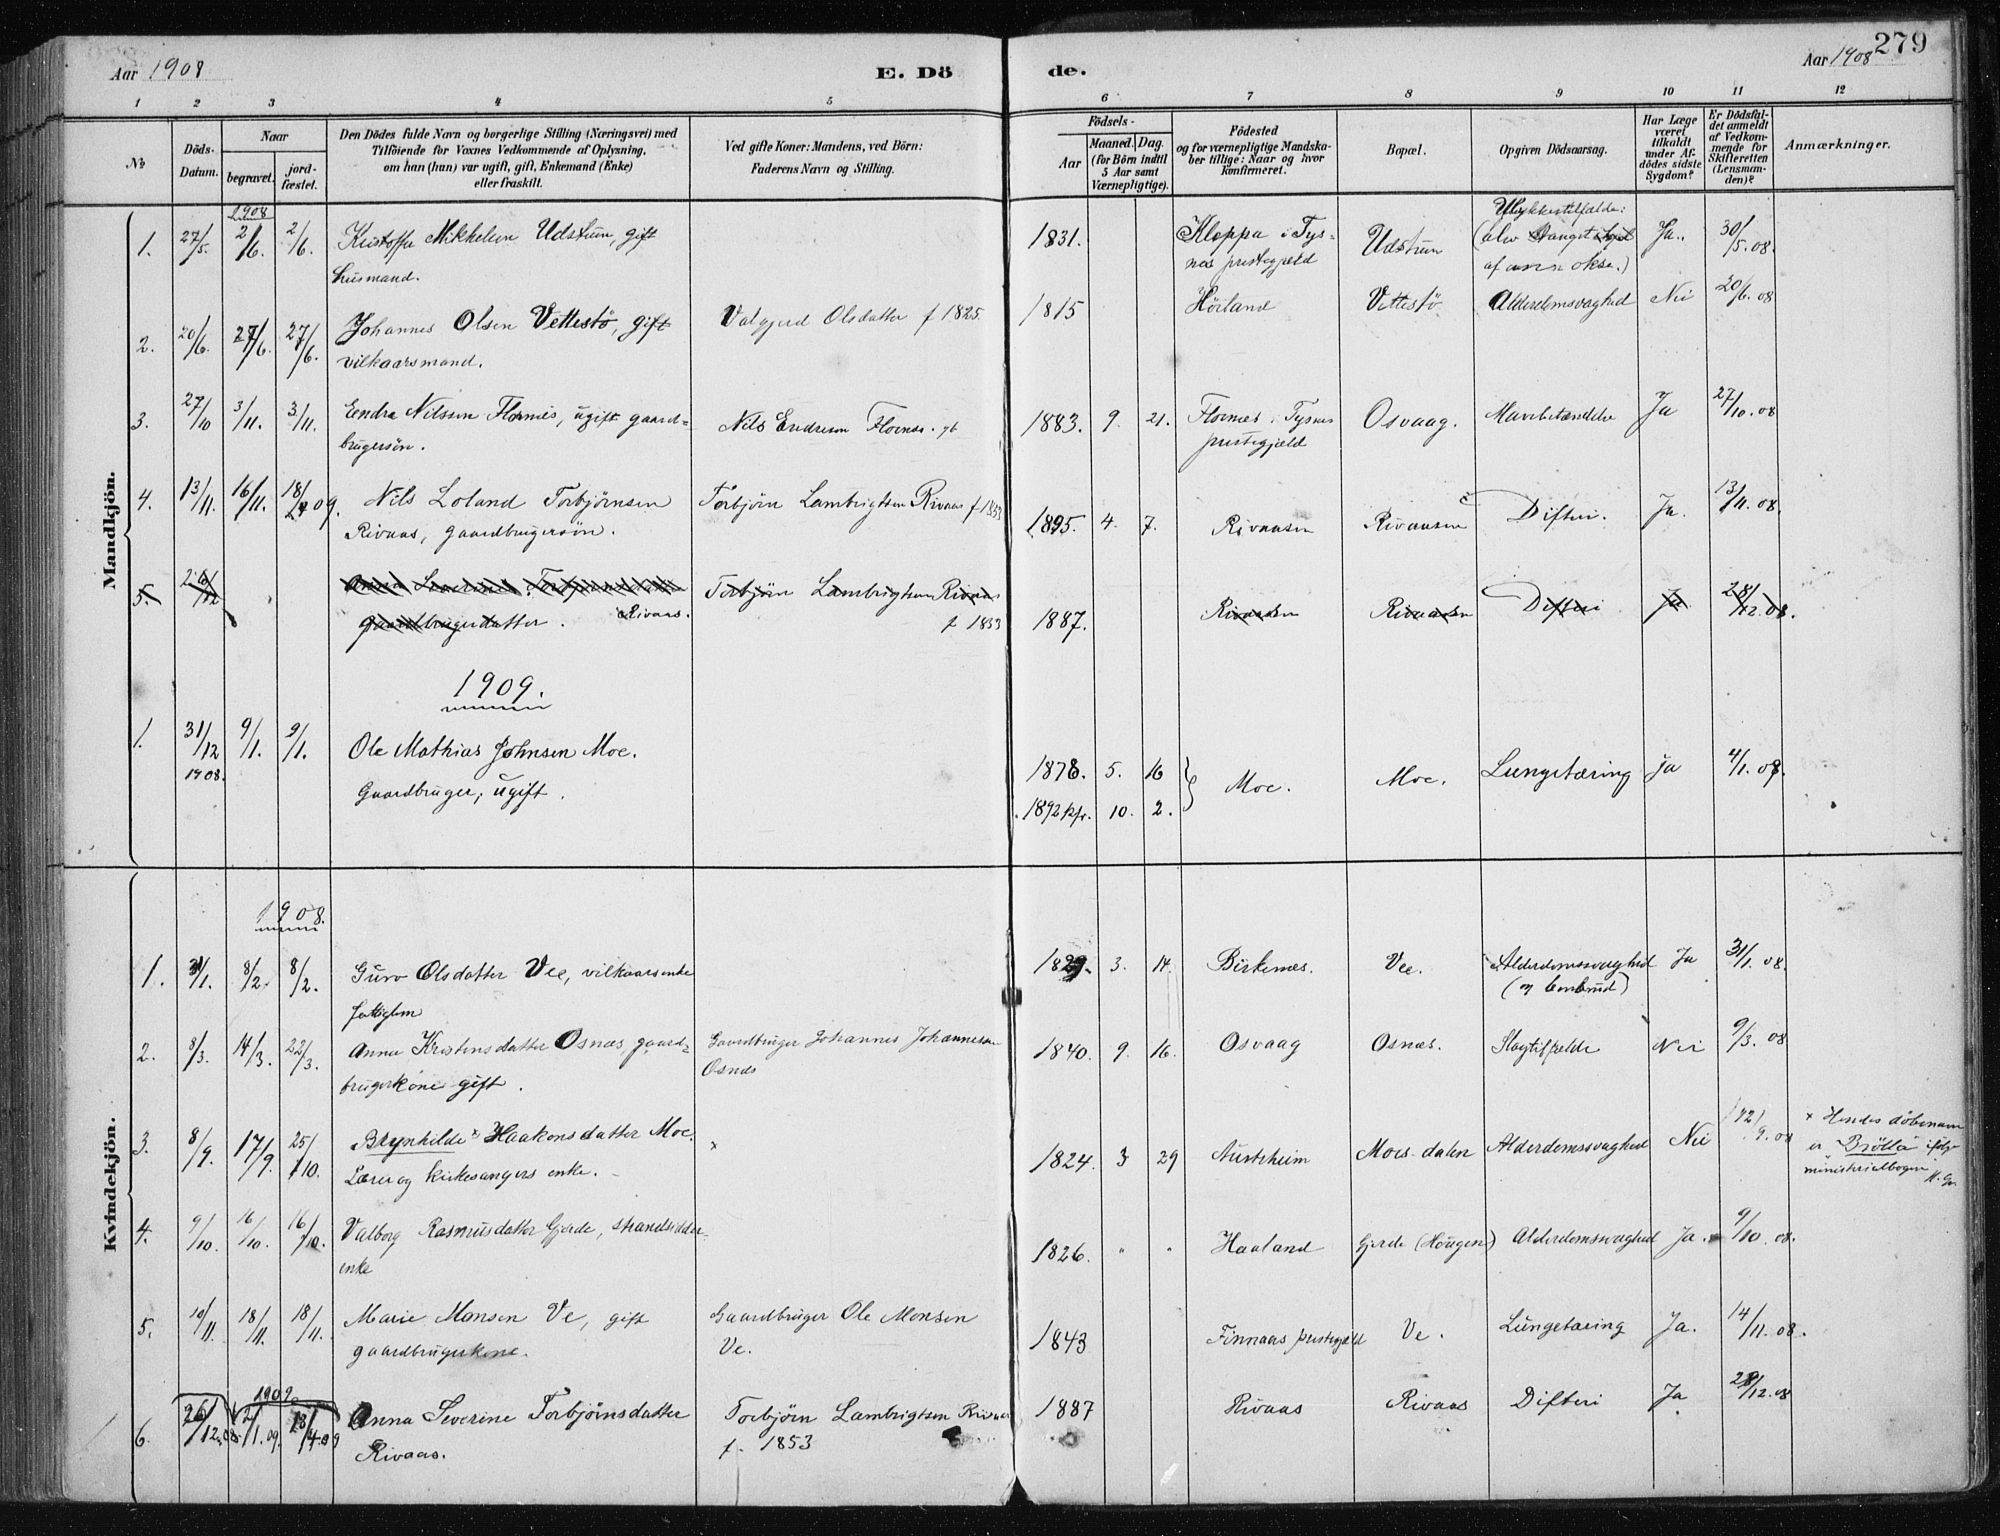 Aar 1908
E. Dö
de.
Aar 1908
279
1 2 3 4 5 6 7 8 9 10 11 12
No
Döds-Datum.
Naar
begravet.
jordfæstet.
Den Dödes fulde Navn og borgerlige Stilling (Næringsvei) med
Tilföiende for Voxnes Vedkommende af Oplysning,
om han (hun) var ugift, gift, Enkemand (Enke)
eller fraskilt.
Ved gifte Koner: Mandens, ved Börn:
Faderens Navn og Stilling.
Födsels-
Aar
Maaned. Dag.
(for Börn indtil
5 Aar samt
Værnepligtige).
Födested
og for værnepligtige Mandska-
ber tillige: Naar og hvor
konfirmeret.
Bopæl.
Opgiven Dödsaarsag.
Har Læge
været
tilkaldt
under Af-
dödes sidste
Sygdom?
Er Dödsfal-
det anmeldt
af Vedkom-
mende for
Skifteretten
(Lensman-
den)?
Anmærkninger.
Mandkjön.
1908
1. 27/5. 2/6. 2/6. Kristoffer Mikkelsen Udstrum, gift
husmand.
1831. Kloppa i Tys-
nes prestegjeld
Udstrum
Ulykkestilfælde:
(blev stanget ihjel
af en okse.)
Ja. 30/5.08.
2. 20/6. 27/6. 27/6. Johannes Olsen Vettestö, gift
vilkaarsmand.
Valgjerd Olsdatter f 1825.
1815 Höiland Vettestö Alderdomsvaghed Nei 20/6.08
3. 27/10 3/11. 3/11. Endre Nilssen Flornes, ugift gaard-
brugersön.
Nils Endresen Flornes. gb
1883. 9. 21. Flornes i Tysnes
prestegjæld
Osvaag. Mavebetændelse Ja 27/10.08
4. 13/11. 16/11. 18/4 09. Nils Loland Torbjörnsen
Rivaas, gaardbrugersön.
Torbjörn Lambrigtsen Rivaas f 1853
1895. 4. 7. Rivaasen Rivaasen Difteri. Ja. 13/11.08.
5. 26/12 Anna Severine Torbjörnsdatter
gaardbrugerdatter. Rivaas.
Torbjörn Lambrigtsen Rivaas
f 1853
1887. Rivaasen Rivaasen Difteri Ja 28/12.08.
1909.
1. 31/12 1908. 9/1. 9/1. Ole Mathias Johnsen Moe.
Gaardbruger, ugift.
1878. 5. 16
1892 kfr. 10. 2.
Moe. Moe. Lungetæring ja 4/1.09.
Kvindekjön.
1908.
1. 31/1. 8/2. 8/2. Guro Olsdatter Vee, vilkaarsenke
fattiglem
1829. 3. 14. Birkenes. Vee. Alderdomssvaghed
(og benbrud)
Ja 31/1.08.
2. 8/3. 14/3. 22/3. Anna Kristensdatter Osnæs, gaard-
brugerkone gift.
Gaardbruger Johannes Johannessen
Osnæs
1840. 9. 16. Osvaag Osnæs. Slagtilfælde Nei 9/3.08
3. 8/9. 17/9. 25/10. Brynhilde x Haakonsdatter Moe.
Lærer og kirkesangers enke.
x
1824. 3 29 Austrheim Moes-dalen Alderdomssvaghed Nei 12/9.08
x Hendes döbenavn
er Brölla ifölge
ministerialbogen
4. 9/10. 16/10. 16/10. Valborg Rasmusdatter Gjerde, strandsidder-
enke
1826. " " Haaland Gjerde (Hougen) Alderdomssvaghed Ja. 9/10.08.
5. 10/11. 18/11. 18/11. Marie Monsen Ve, gift
gaardbrugerkone.
Gaardbruger Ole Monsen
Ve.
1843 Finnaas prestegjeld Ve. Lungetæring Ja. 14/11.08.
1909
6. 26/12.08. 2/1.09. 18/4.09 Anna Severine Torbjörnsdatter
Rivaas.
Torbjörn Lambrigtsen Rivaas
f. 1853
1887 Rivaas Rivaas Difteri Ja 28/12.08